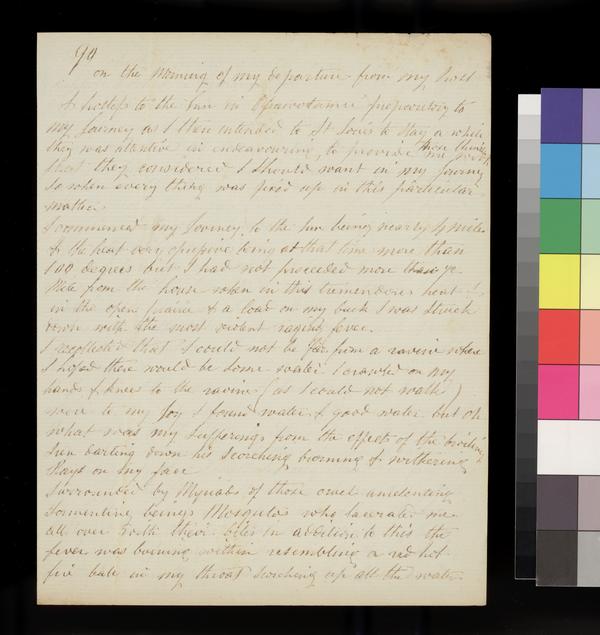 90
on the Morning of my departure from my host
& hostess to the Inn in Ossawatamie preparatory to
my Journey as I then intended to St Louis to stay a while
they was attentive in endeavouring to provide me with
those things
that they considered I should want in my Journey
so when every thing was fixed up in this particular
matter
I commenced my Journey to the Inn being nearly 4 miles
& the heat very opresive being at that time more than
100 degrees but I had not proceeded more than
Mile from the house when in this tremendous heat &
in the open prairie & a load on my back I was struck
down with the most violent raging fever.
I recollected that I could not be far from a ravine where
I hoped there would be some water I crawled on my
hands & knees to the ravine (as I could not walk)
were to my Joy I found water & good water but oh
what was my Sufferings from the effects of the broiling
Sun darting down his scorching burning & withering
Rays on my face
Surrounded by Myriads of those cruel unrelenting
tormenting beings Mosquitos who lacerated me
all over with their bites in addition to this the
fever was burning within resembling a red hot
fire ball in my throat scorching up all the water